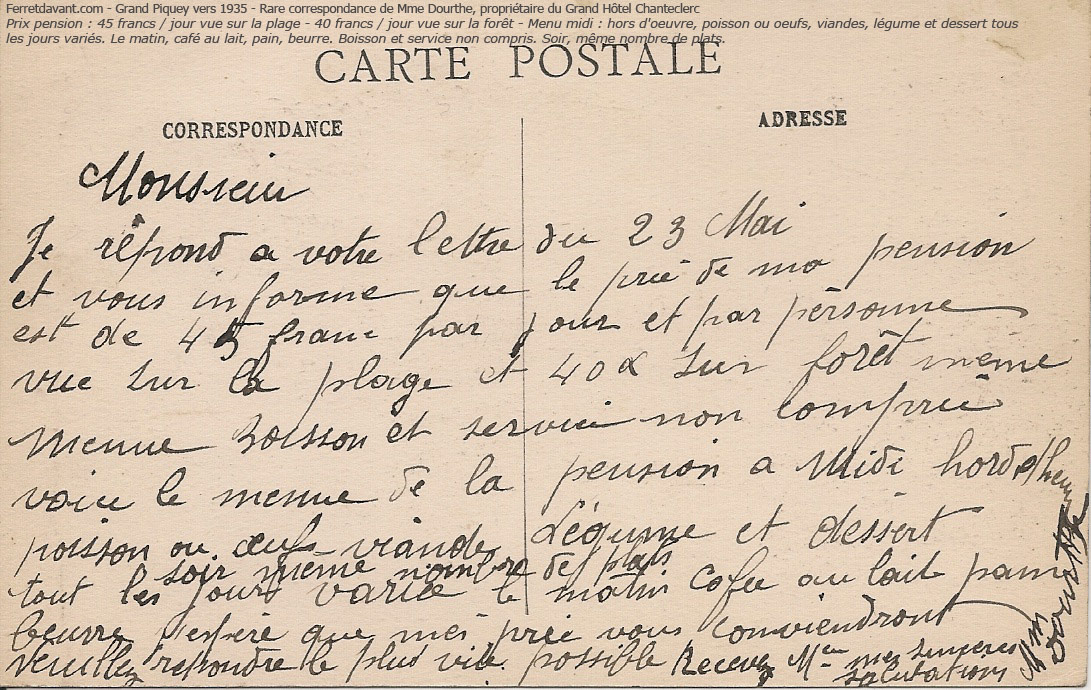 Ferretdavant.com - Grand Piquey vers 1935 - Rare correspondance de Mme Dourthe, propriétaire du Grand Hôtel Chanteclerc
Prix pension : 45 francs / jour vue sur la plage - 40 francs / jour vue sur la forêt - Menu midi : hors d'oeuvre, poisson ou oeufs, viandes, légume et dessert tous
les jours variés. Le matin, café au lait, pain, beurre. Boisson et service non compris. Soir, même nombre de plats.
CARTE POSTALE
CORRESPONDANCE
ADRESSE
Monsieur
Je répond a votre lettre du 23 Mai
et vous informe que le prie de ma pension
est de 45 franc par jour et par personne
vue sur la plage et 40 sur forêt meme
menue Boisson et service non comprie
voici le menue de la pension a Midi hord
poisson ou œufs viande Légume et dessert
soir meme nombre de plats
tout les jours varie le matin Cafee au lait pain
beurre j'espère que mes prie vous conviendront
Veuillez repondre le plus vite possible Recevez Mr mes sinceres
salutations
Mme
Dourthe